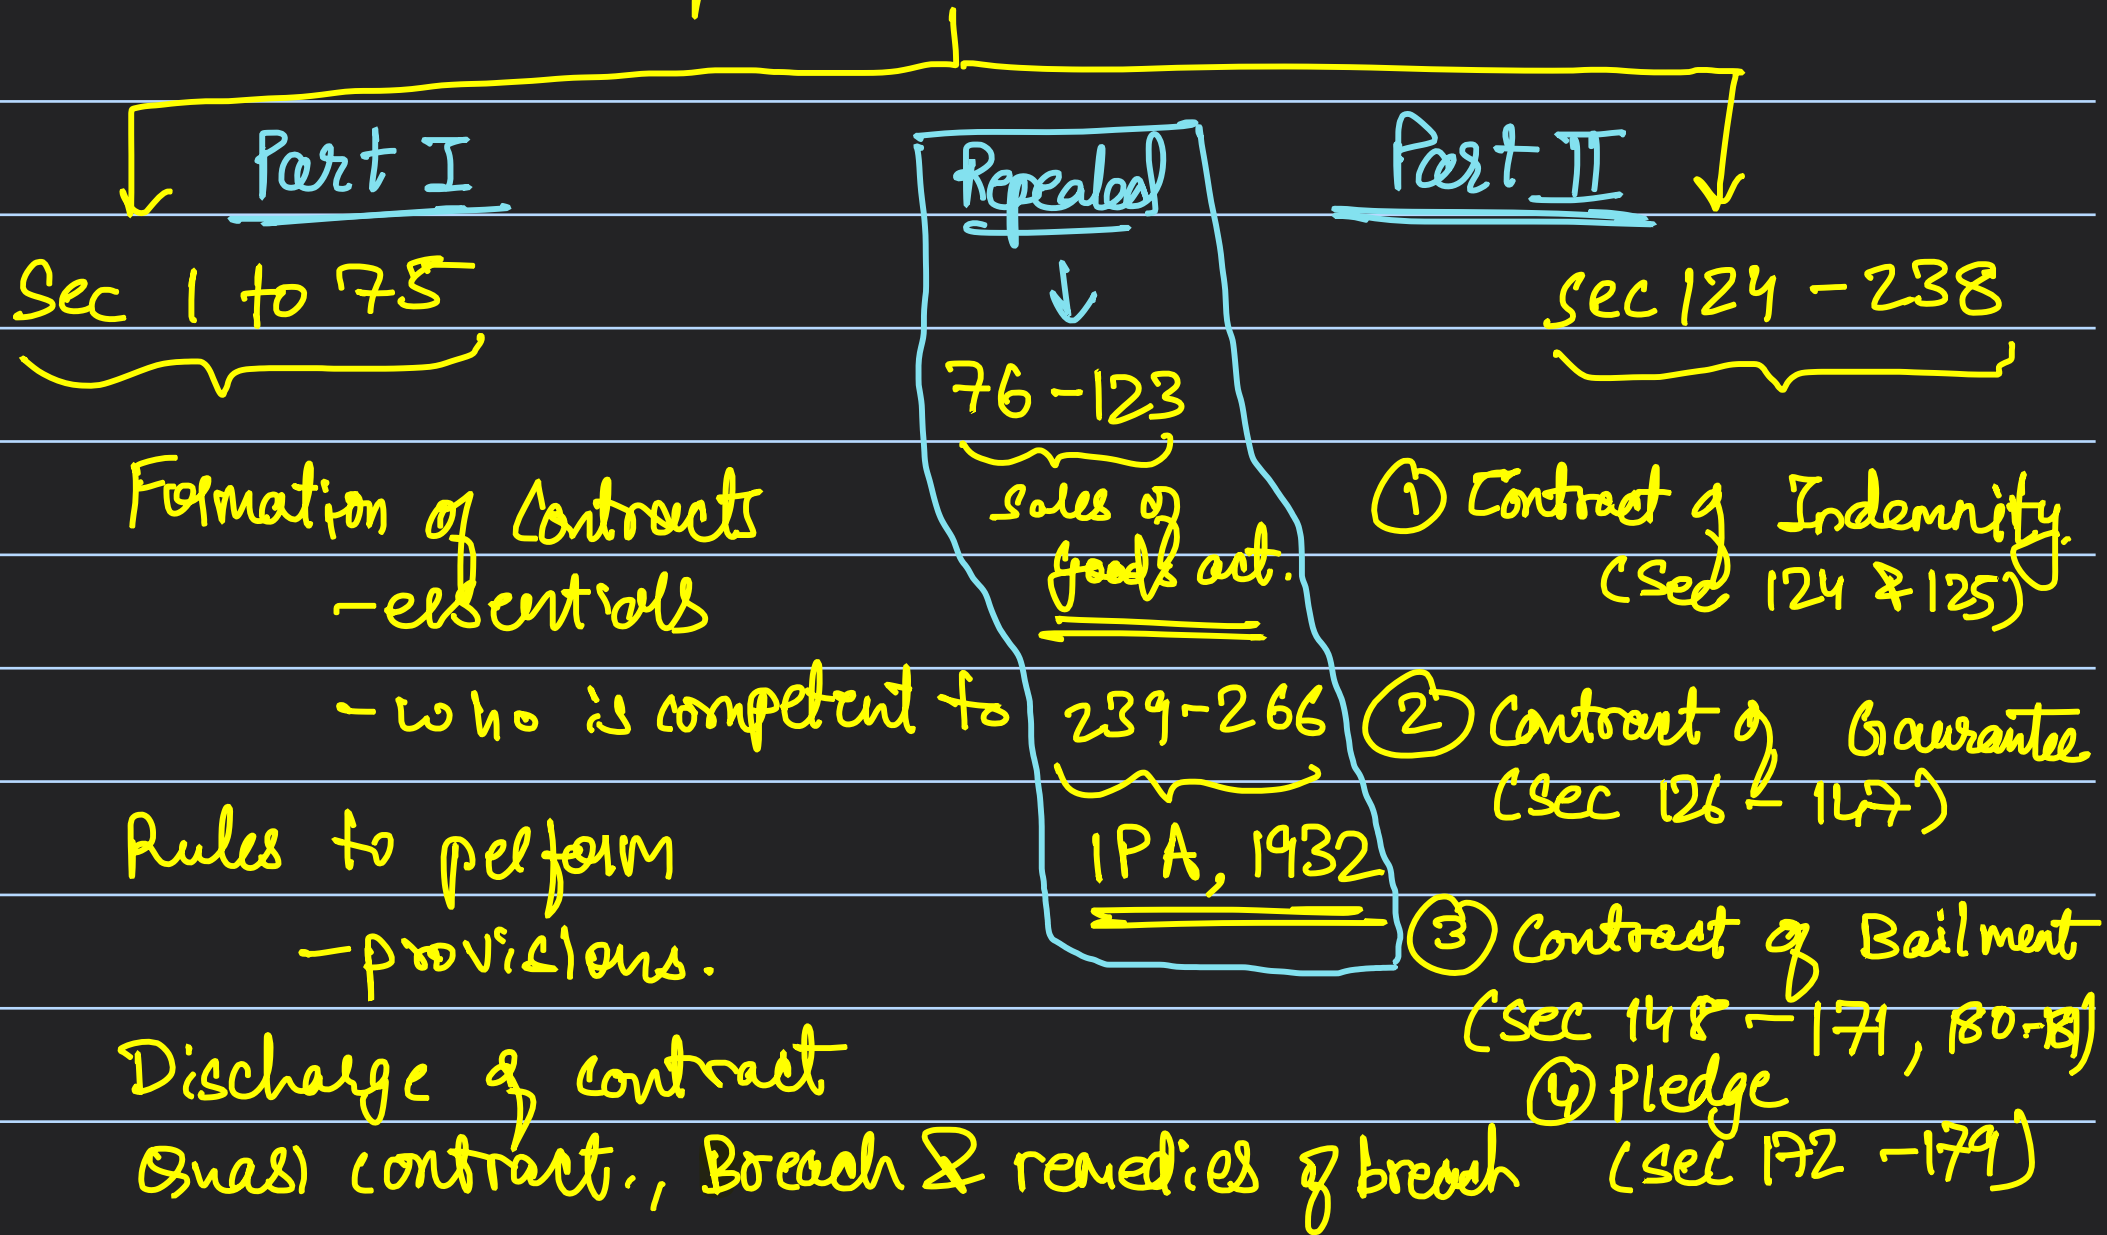 Part I
Sec 1 to 75
Formation of Contracts
- essentials
- who is competent to
Rules to perform
- provisions.
Discharge of contract
Quasi contract., Breach & remedies of breach
Repealed
76-123
Sales of
goods act.
239-266
IPA, 1932
Part II
Sec 124 - 238
① Contract of Indemnity.
(Sec 124 & 125)
② Contract of Gaurantee
(Sec 126 - 147)
③ Contract of Bailment
(Sec 148 - 171, 180-181)
④ Pledge
(Sec 172 - 179)